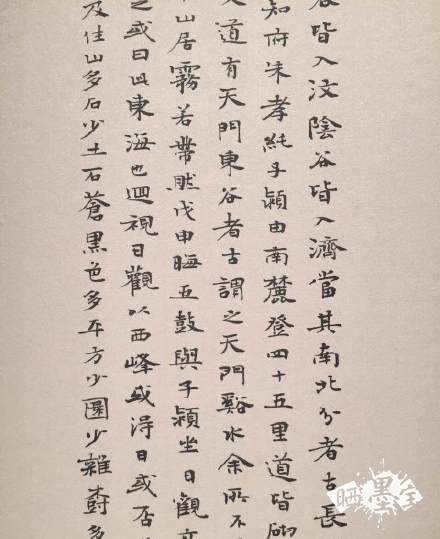 谷皆入汶陰谷皆入濟當其南北分者古長
知府朱孝純子潁由南麓登四十五里道皆砌
道有天門東谷者古謂之天門谿水余所不
山居霧若帶然戊申晦五鼓與子潁坐日觀
之或曰此東海也迴視日觀以西峰或得日或否
及往山多石少土石蒼黑色多平方少圜少雜樹多
晒墨宝